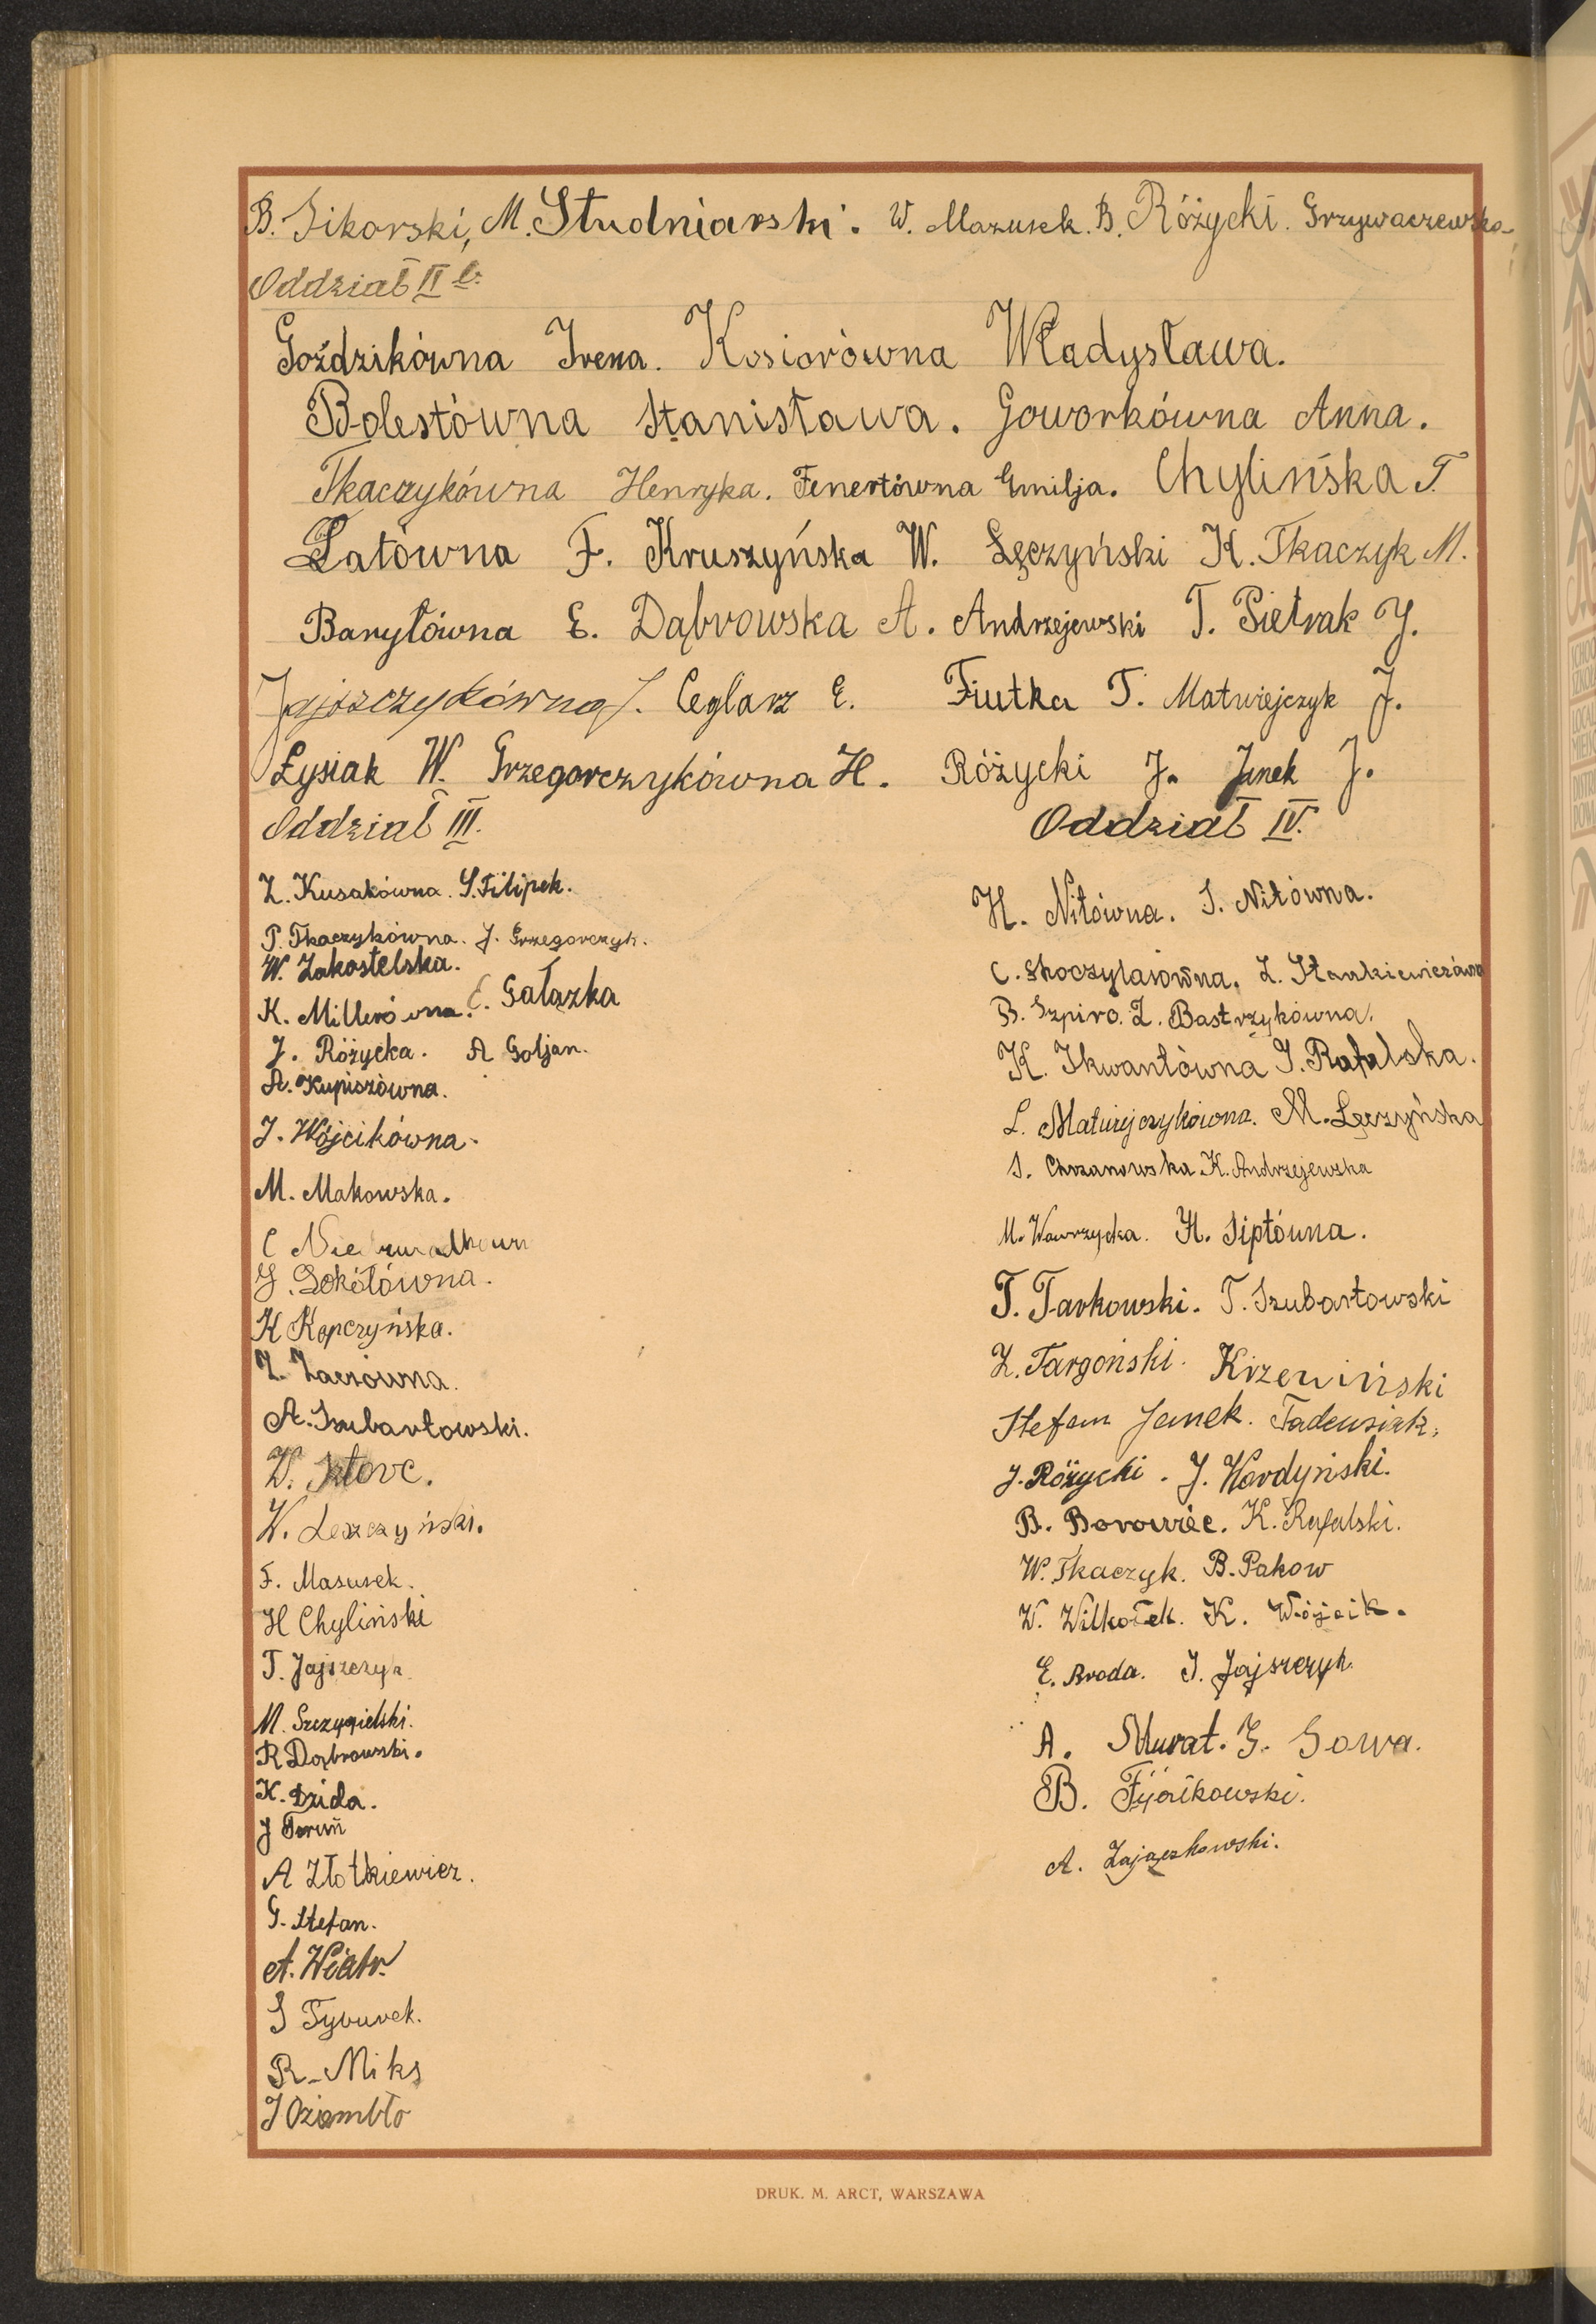 B. Sikorski, M. Studniarski. W. Mazurek. B. Różycki. Grzywaczewska
Oddział II b.
Goździkówna Irena. Kosiorówna Władysława.
Bolestówna Stanisława. Goworkówna Anna.
Tkaczykówna Henryka. Fenertówna Emilja. Chylińska T.
Łatówna F. Kruszyńska W. Łęczyński K. Tkaczyk M.
Baryłówna E. Dąbrowska A. Andrzejewski T. Pietrak J.
Jajszczykówna J. Ceglarz E. Fiutka T. Matwiejczyk J.
Łysiak W. Grzegorczykówna H. Różycki J. Janek J.
Oddział III.
Z. Kusakówna. S. Filipek.
P. Tkaczykówna. J. Grzegorczyk.
W. Zakostelska.
K. Millerówna. E. Gałązka
J. Różycka. A Goljan.
A. Kupiszówna.
J. Wójcikówna.
M. Makowska.
C
J. Sokółówna.
K Kopczyńska.
Z.
A. Szubartowski.
W. Sztorc.
W. Leszczyński.
F. Masurek.
H Chyliński
T. Jajszczyk
M. Szczygielski.
R Dąbrowski.
K. Dzida.
J Toruń
A Złotkiewicz.
G. Stefan.
A. Wiatr.
S Tyburek.
R. Miks
J Oziembło
Oddział IV.
H. Nitówna. S. Nitówna.
C. Skoczylasówna. Z. Stankiewiczówna
B. Szpiro. Z. Bastrzykówna.
K. Skwantówna J. Rafalska.
L. Matwiejczykówna. M. Łęczyńska
S. Chrzanowska K. Andrzejewska
M. Wawrzycka. H. Siptówna.
T. Tarkowski. T. Szubartowski
Z. Targoński. Krzewiński
Stefan Janek. Tadeusiak.
J. Różycki. J. Wardyński.
B. Borowiec. K. Rafalski.
W. Tkaczyk. B. Pakow
W. Wilkołek. K. Wójcik.
E. Broda. J. Jajszczyk.
A. Murat. G. Sowa.
B. Fijałkowski.
A. Zajączkowski.
DRUK. M. ARCT, WARSZAWA